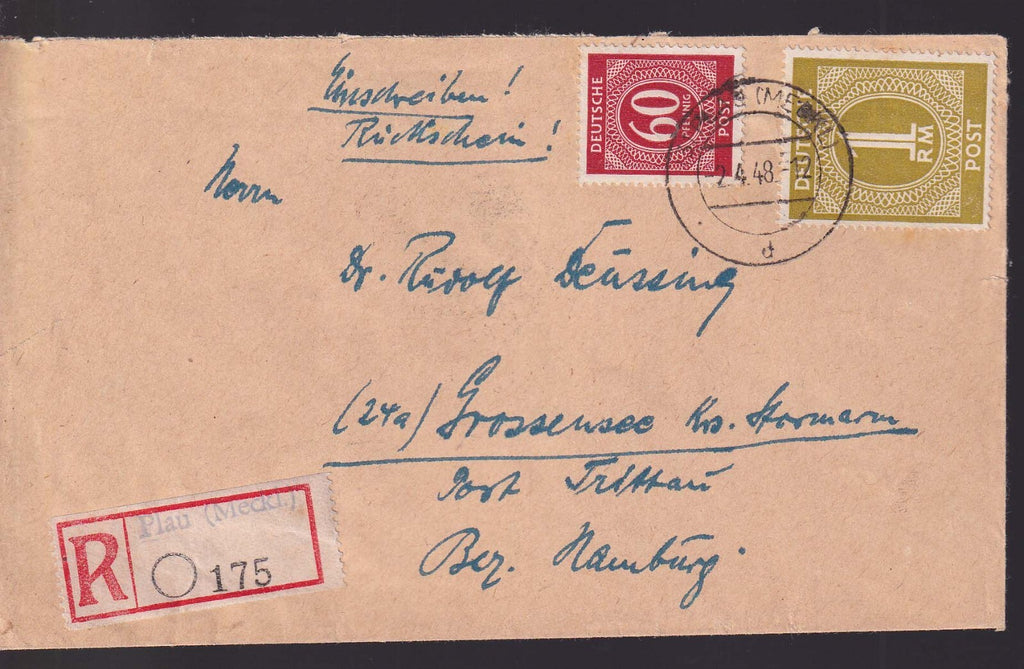 Einschreiben!
Rückschein!
DEUTSCHE
60
PFENNIG
POST
DEUTSCHE
1
RM
POST
(MECKL)
-2.4.48.-12
d
Herrn
Dr. Rudolf Deüssing
(24a) Grossensee Krs. Stormarn
Post Trittaü
Bez. Hambürg
R
Plau (Meckl.)
175